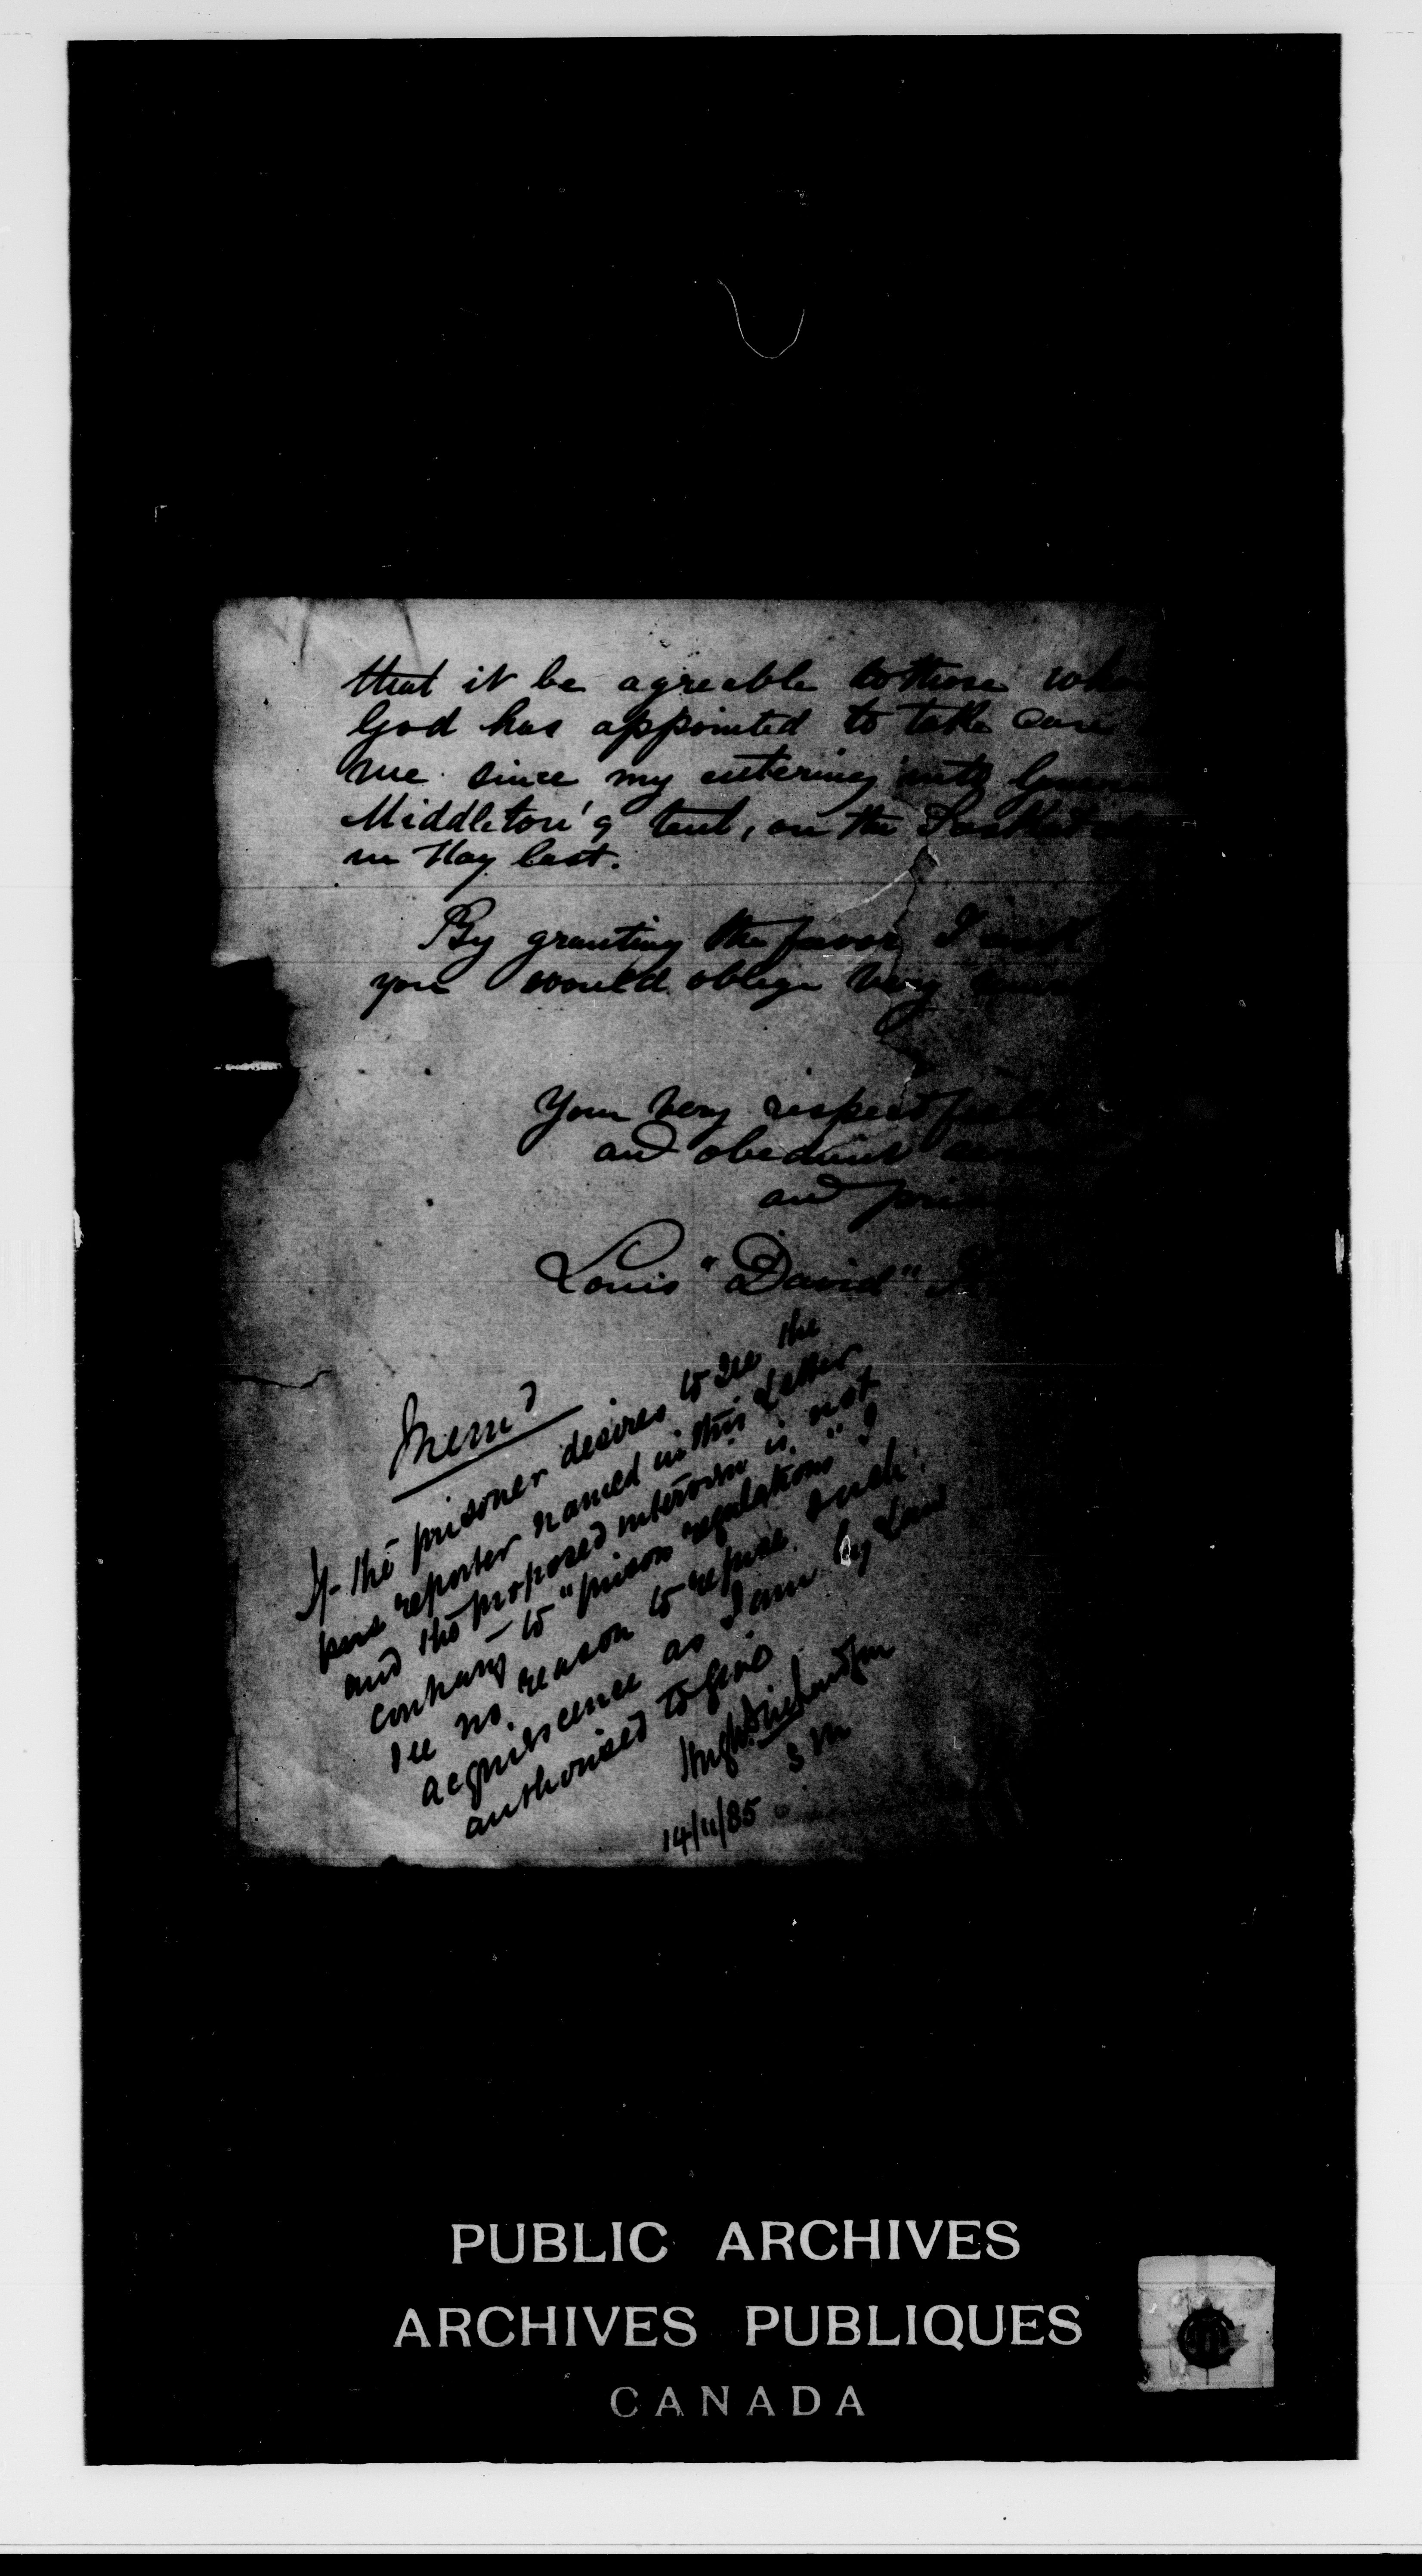 that it be agreeable to those who
God has appointed to take care
me since my entering into
Middleton's tent, on the
in May last.
By granting the favor I
you would oblige very
Your very respectful
and obedient
and
Louis "David"
Memo
If the prisoner desires to see the
reporter named in this letter
and the proposed interview is not
contrary to "prison regulations" I
see no reason to refuse such
acquiescence as I am by Law
authorised to give
Hugh Richardson
S M
14/11/85
PUBLIC ARCHIVES
ARCHIVES PUBLIQUES
CANADA